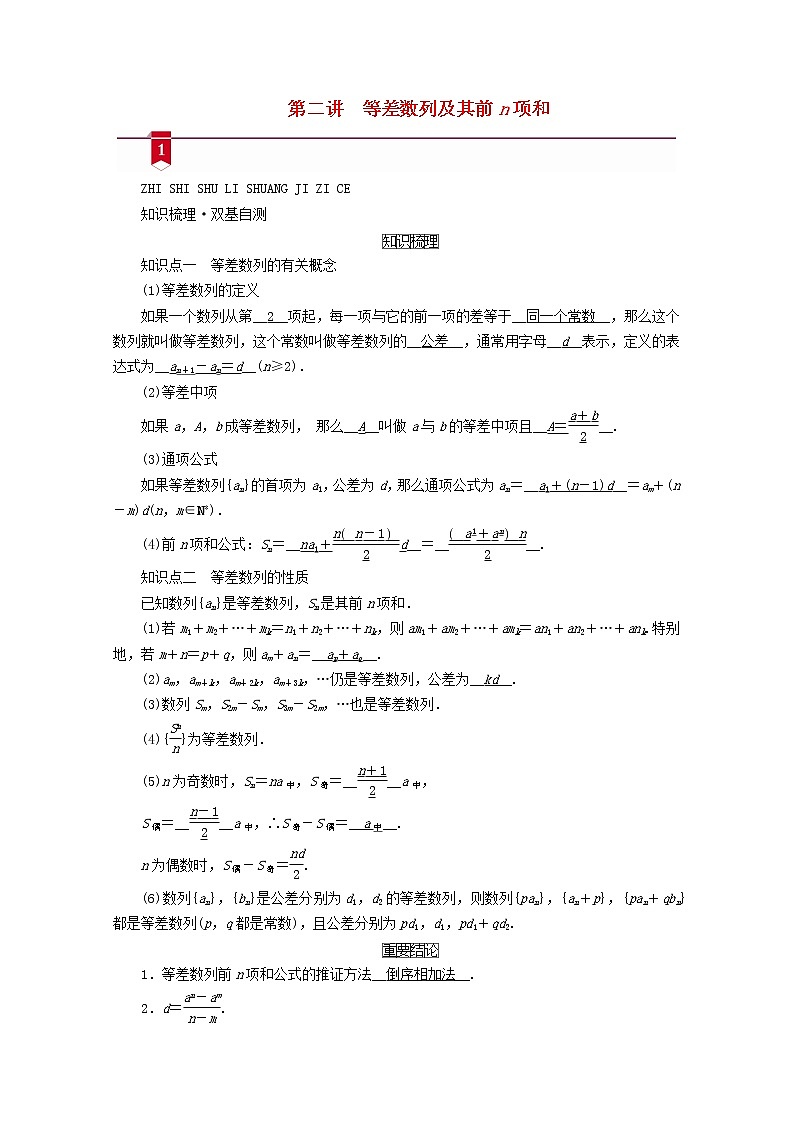 第二讲　等差数列及其前n项和
1
ZHI SHI SHU LI SHUANG JI ZI CE
知识梳理·双基自测
知识梳理
知识点一　等差数列的有关概念
(1)等差数列的定义
如果一个数列从第__2__项起，每一项与它的前一项的差等于__同一个常数__，那么这个
数列就叫做等差数列，这个常数叫做等差数列的__公差__，通常用字母__d__表示，定义的表
达式为__aₙ₊₁－aₙ＝d__(n≥2)．
(2)等差中项
如果a，A，b成等差数列， 那么__A__叫做a与b的等差中项且__A＝(a＋b)/2__．
(3)通项公式
如果等差数列{aₙ}的首项为a₁，公差为d，那么通项公式为aₙ＝__a₁＋(n－1)d__＝aₘ＋(n
－m)d(n，m∈N*)．
(4)前n项和公式：Sₙ＝__na₁＋n(n－1)/2 d__＝__(a1＋an)n/2__．
知识点二　等差数列的性质
已知数列{aₙ}是等差数列，Sₙ是其前n项和．
(1)若m₁＋m₂＋…＋mₖ＝n₁＋n₂＋…＋nₖ，则am₁＋am₂＋…＋amₖ＝an₁＋an₂＋…＋anₖ.特别
地，若m＋n＝p＋q，则aₘ＋aₙ＝__aₚ＋a_q__．
(2)aₘ，aₘ₊ₖ，aₘ₊₂ₖ，aₘ₊₃ₖ，…仍是等差数列，公差为__kd__．
(3)数列Sₘ，S₂ₘ－Sₘ，S₃ₘ－S₂ₘ，…也是等差数列．
(4){Sn/n}为等差数列．
(5)n为奇数时，Sₙ＝na中，S奇＝__(n＋1)/2__a中，
S偶＝__(n－1)/2__a中，∴S奇－S偶＝__a中__．
n为偶数时，S偶－S奇＝nd/2.
(6)数列{aₙ}，{bₙ}是公差分别为d₁，d₂的等差数列，则数列{paₙ}，{aₙ＋p}，{paₙ＋qbₙ}
都是等差数列(p，q都是常数)，且公差分别为pd₁，d₁，pd₁＋qd₂.
重要结论
1．等差数列前n项和公式的推证方法__倒序相加法__．
2．d＝(an－am)/(n－m).